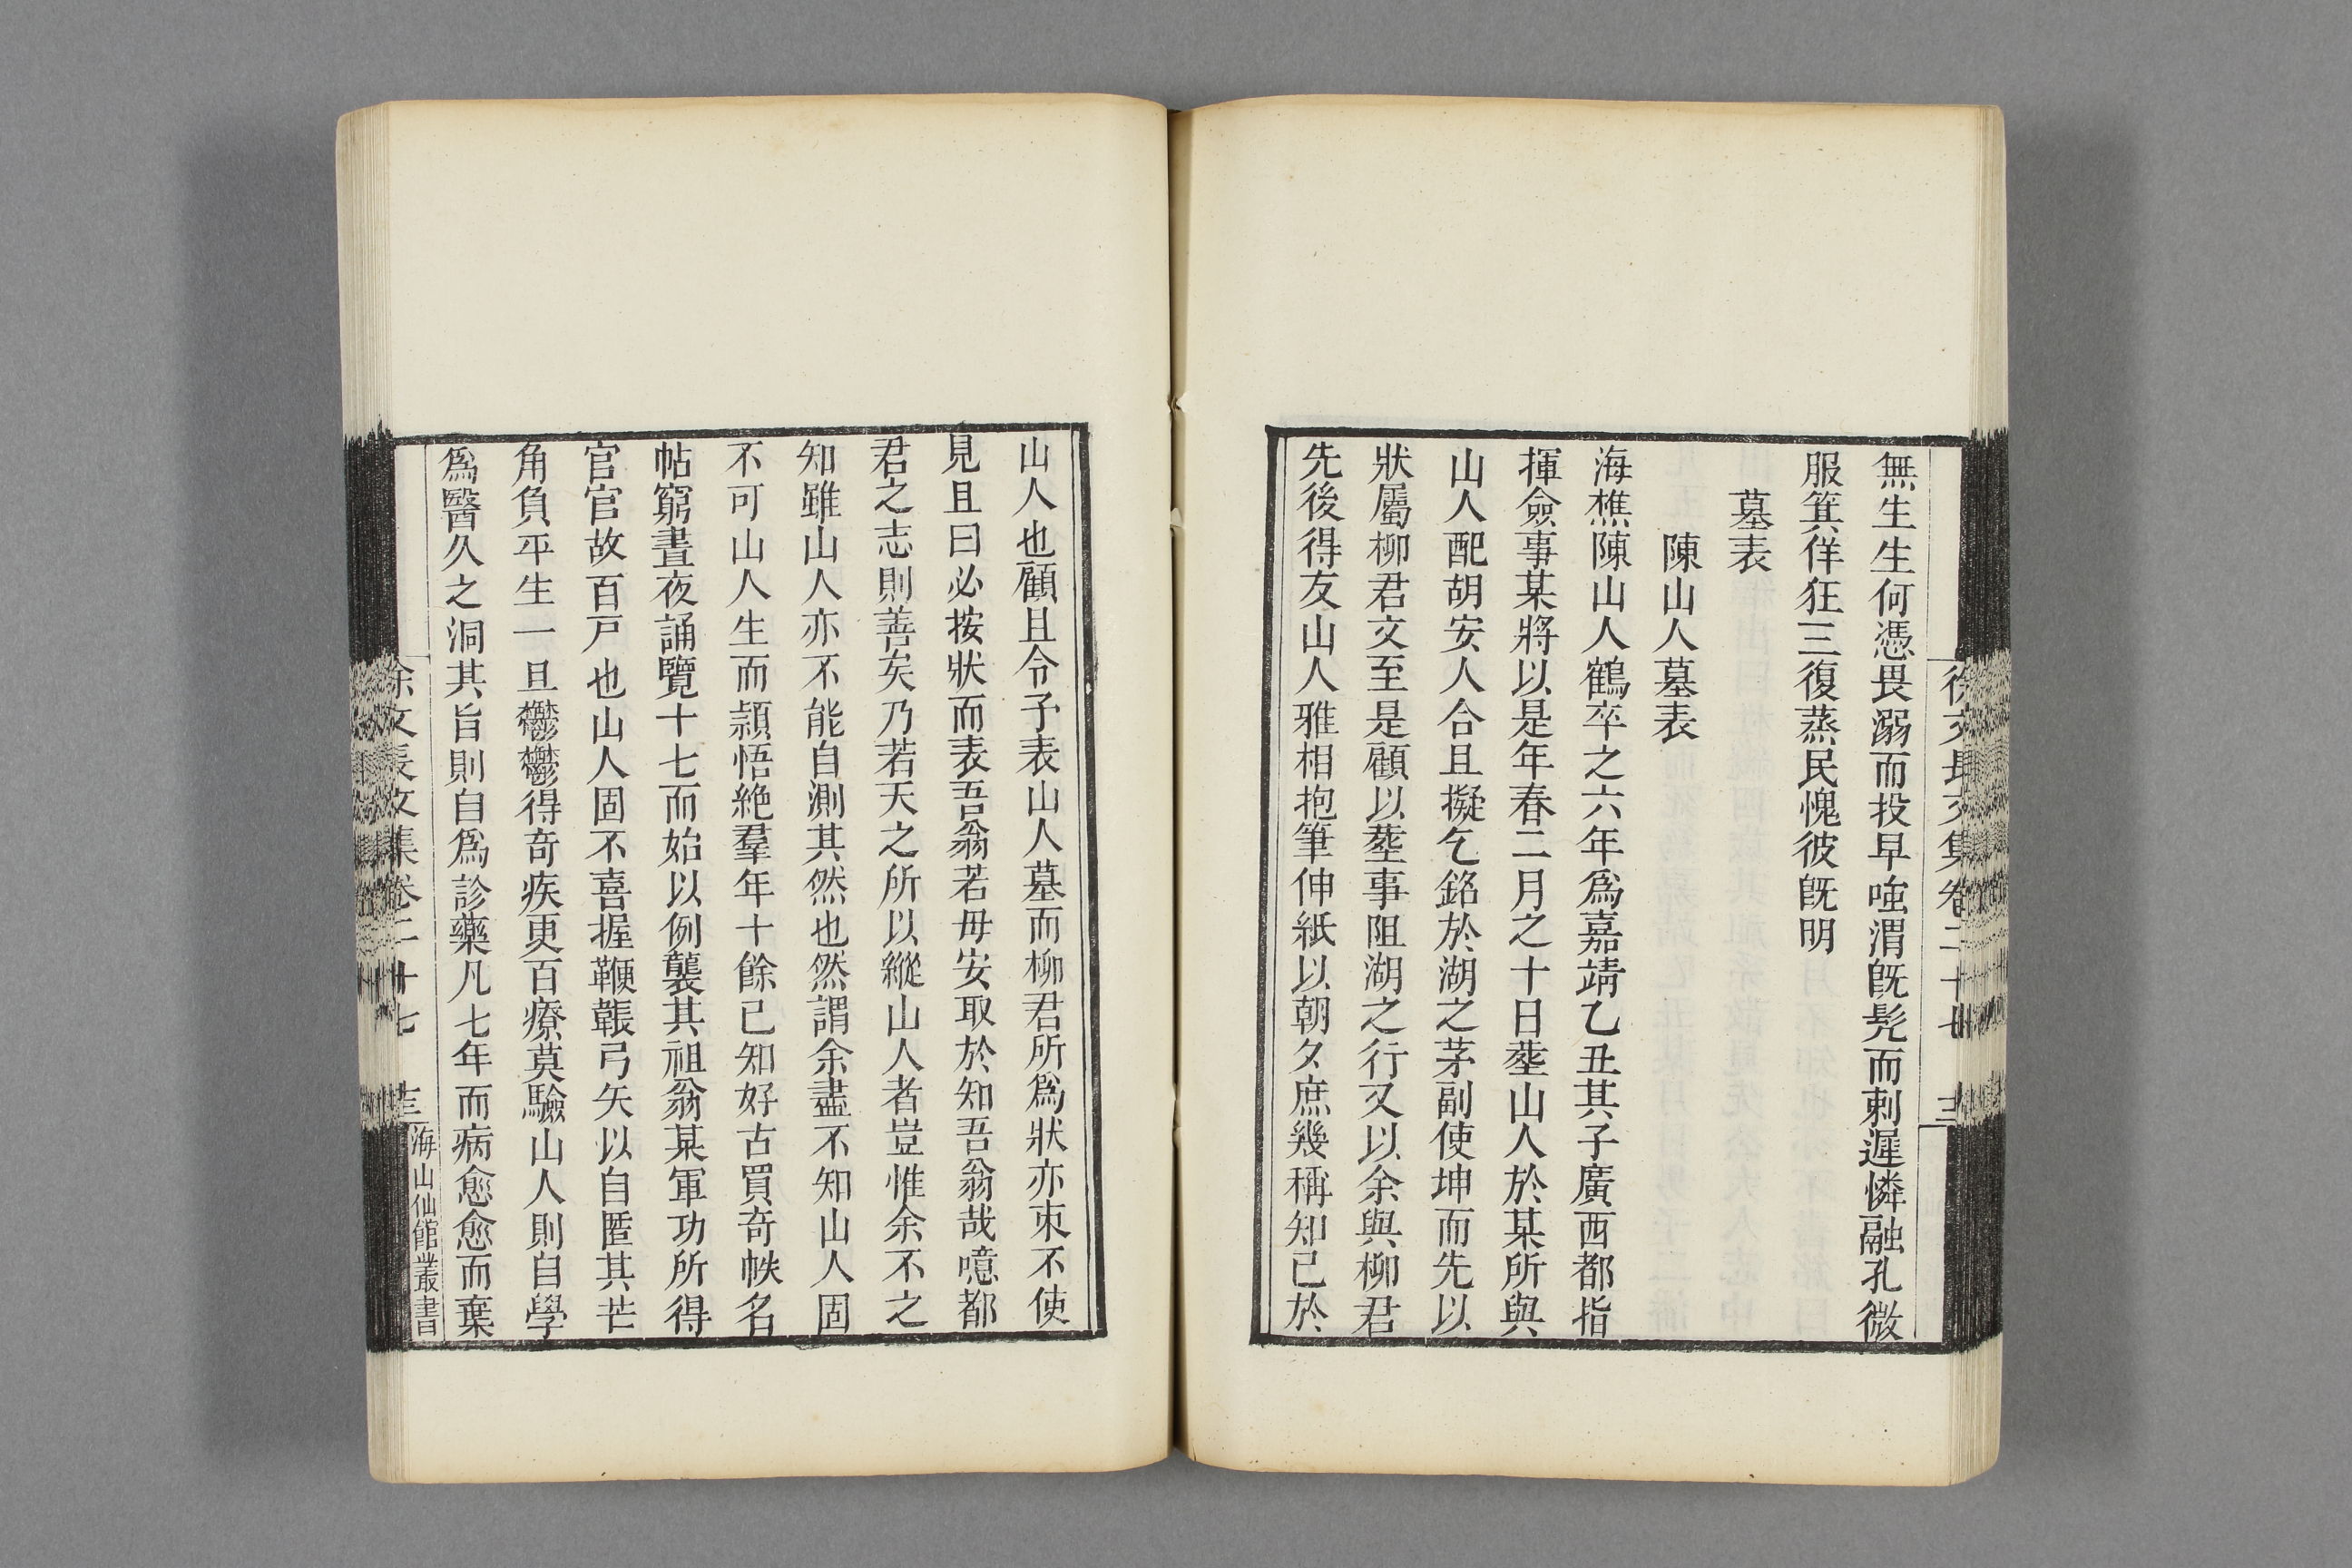 無生生何憑畏溺而投早𡁲渭旣髡而剌遲憐融孔微
服箕佯狂三復蒸民愧彼旣明
墓表
陳山人墓表
海樵陳山人鶴卒之六年爲嘉靖乙丑其子廣西都指
揮僉事某將以是年春二月之十日塟山人於某所與
山人配胡安人合且擬乞銘於湖之茅副使坤而先以
狀屬柳君文至是顧以塟事阻湖之行又以余與柳君
先後得友山人雅相抱筆伸紙以朝夕庶幾稱知已於
山人也顧且令予表山人墓而柳君所爲狀亦朿不使
見且曰必按狀而表吾翁若毋安取於知吾翁哉噫都
君之志則善矣乃若天之所以縱山人者豈惟余不之
知雖山人亦不能自測其然也然謂余盡不知山人固
不可山人生而頴悟絶羣年十餘已知好古買奇帙名
帖窮晝夜誦覽十七而始以例襲其祖翁某軍功所得
官官故百戸也山人固不喜握鞭韔弓矢以自匿其芒
角負平生一旦鬱鬱得奇疾更百療莫驗山人則自學
爲醫久之洞其旨則自爲診藥凡七年而病愈愈而棄
徐文長文集卷二十七
海山仙館叢書